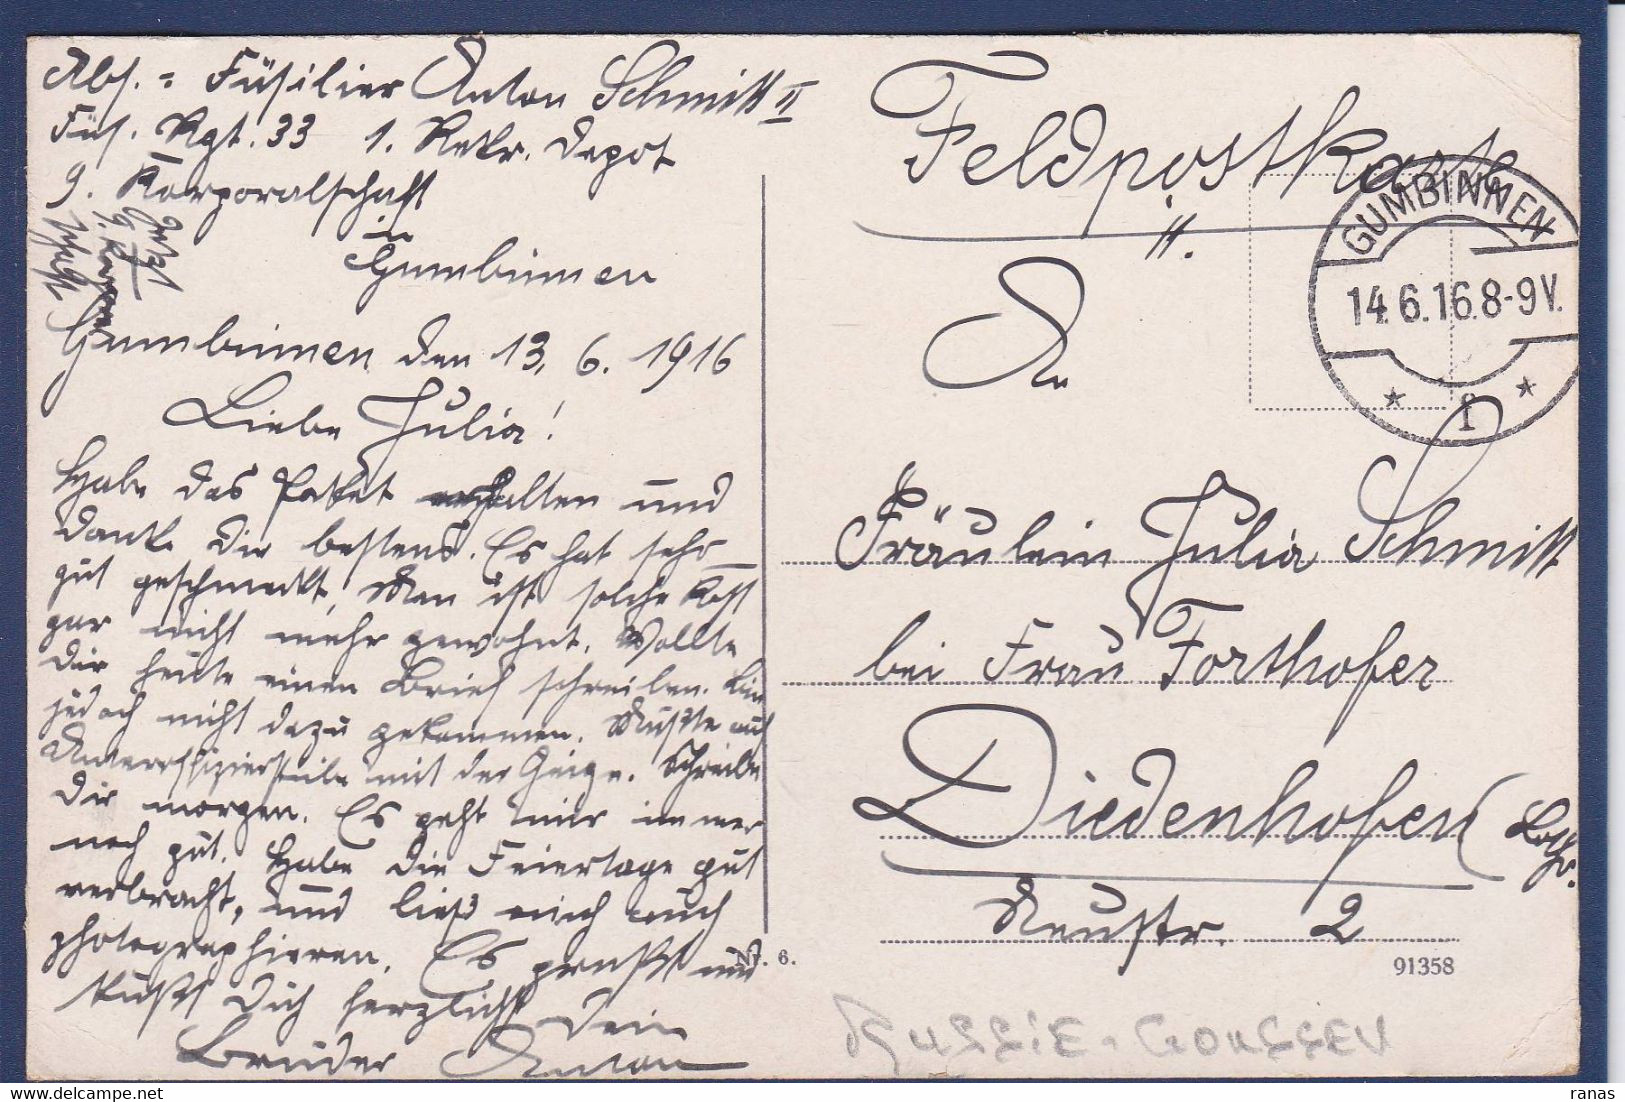 Abs. = Füsilier Anton Schmitt II
Füs. Rgt. 33 1. Rekr. Depot
9. Korporalschaft
in
Gumbinnen
Jetzt
9. Korporalschaft
Gumbinnen den 13. 6. 1916
Liebe Julia!
Habe das Paket erhalten und
danke Dir bestens. Es hat sehr
gut geschmeckt, Man ist solche Kost
gar nicht mehr gewohnt. Wollte
Dir heute einen Brief schreiben. Bin
jedoch nicht dazu gekommen. Mußte auf
Unteroffizierstube mit der Geige. Schreibe
Dir morgen. Es geht mir immer
noch gut. Habe die Feiertage gut
verbracht, und ließ mich auch
photographieren. Es grüßt und
küßt Dich herzlichst Dein
Bruder Anton
Nr. 6.
Feldpostkarte
GUMBINNEN
14.6.16.8-9V.
* f *
An
Fräulein Julia Schmitt
bei Frau Forthofer
Diedenhofen (Lothr.
Neustr. 2
91358
RUSSIE - GOUSSEV
ranas